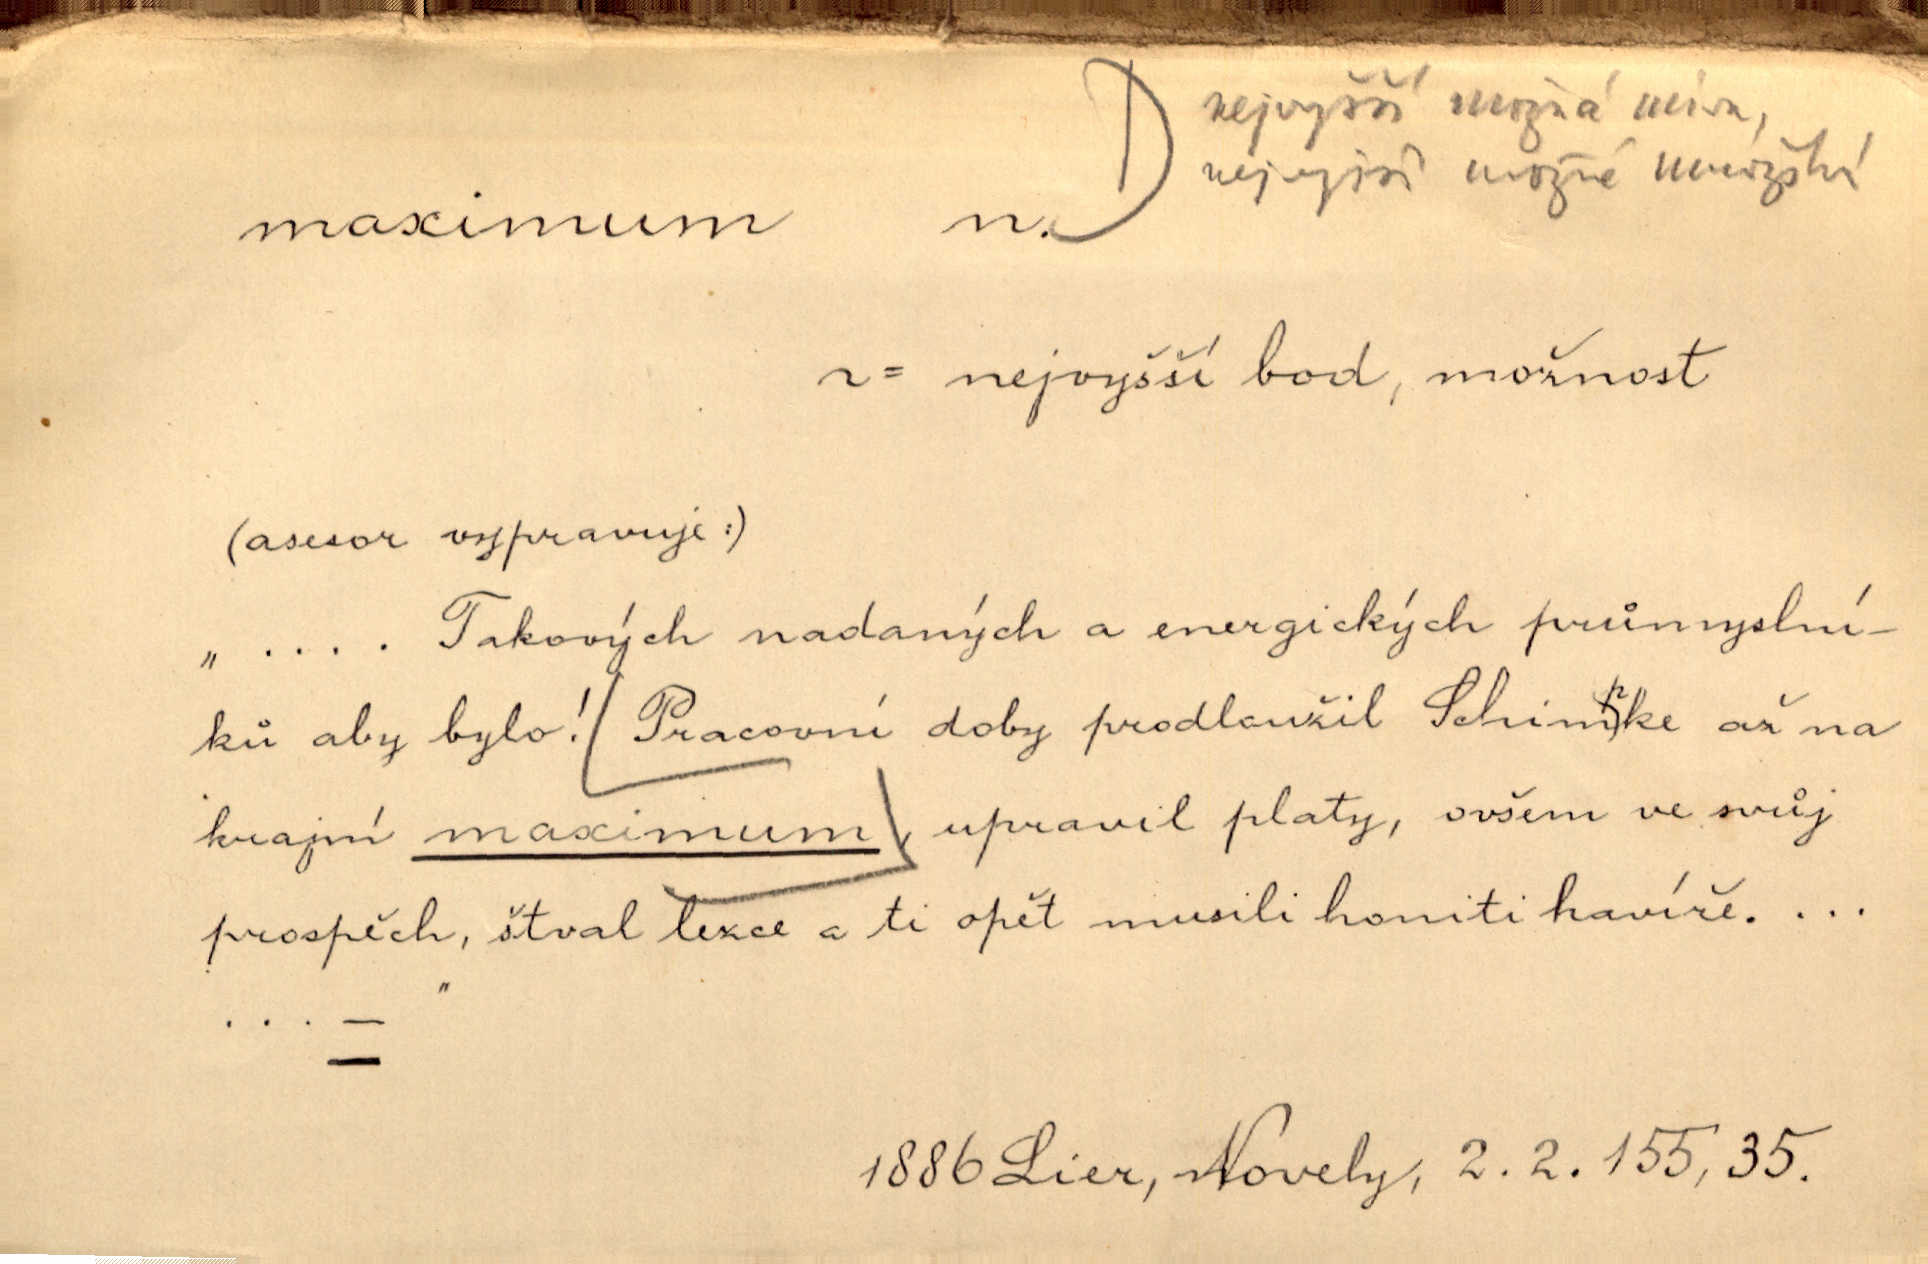 nejvyšší možná míra,
nejvyšší možné množství
maximum n.
n = nejvyšší bod, možnost
(asesor vypravuje:)
„ .... Takových nadaných a energických průmyslní-
ků aby bylo! Pracovní doby prodloužil Schimpke až na
krajní maximum, upravil platy, ovšem ve svůj
prospěch, štval lezce a ti opět musili honiti havíře. ...
... — "
1886 Lier, Novely, 2. 2. 155, 35.